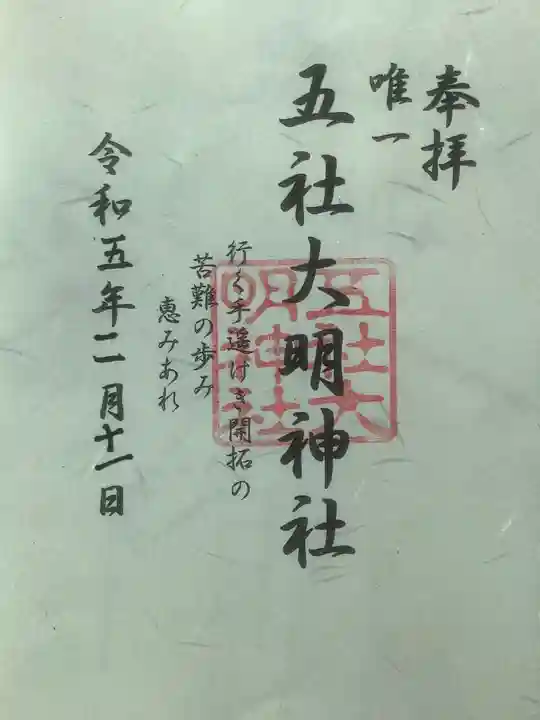 奉拝
唯一
五社大明神社
五社大
明神社
行く手遥けき開拓の
苦難の歩み
恵みあれ
令和五年二月十一日